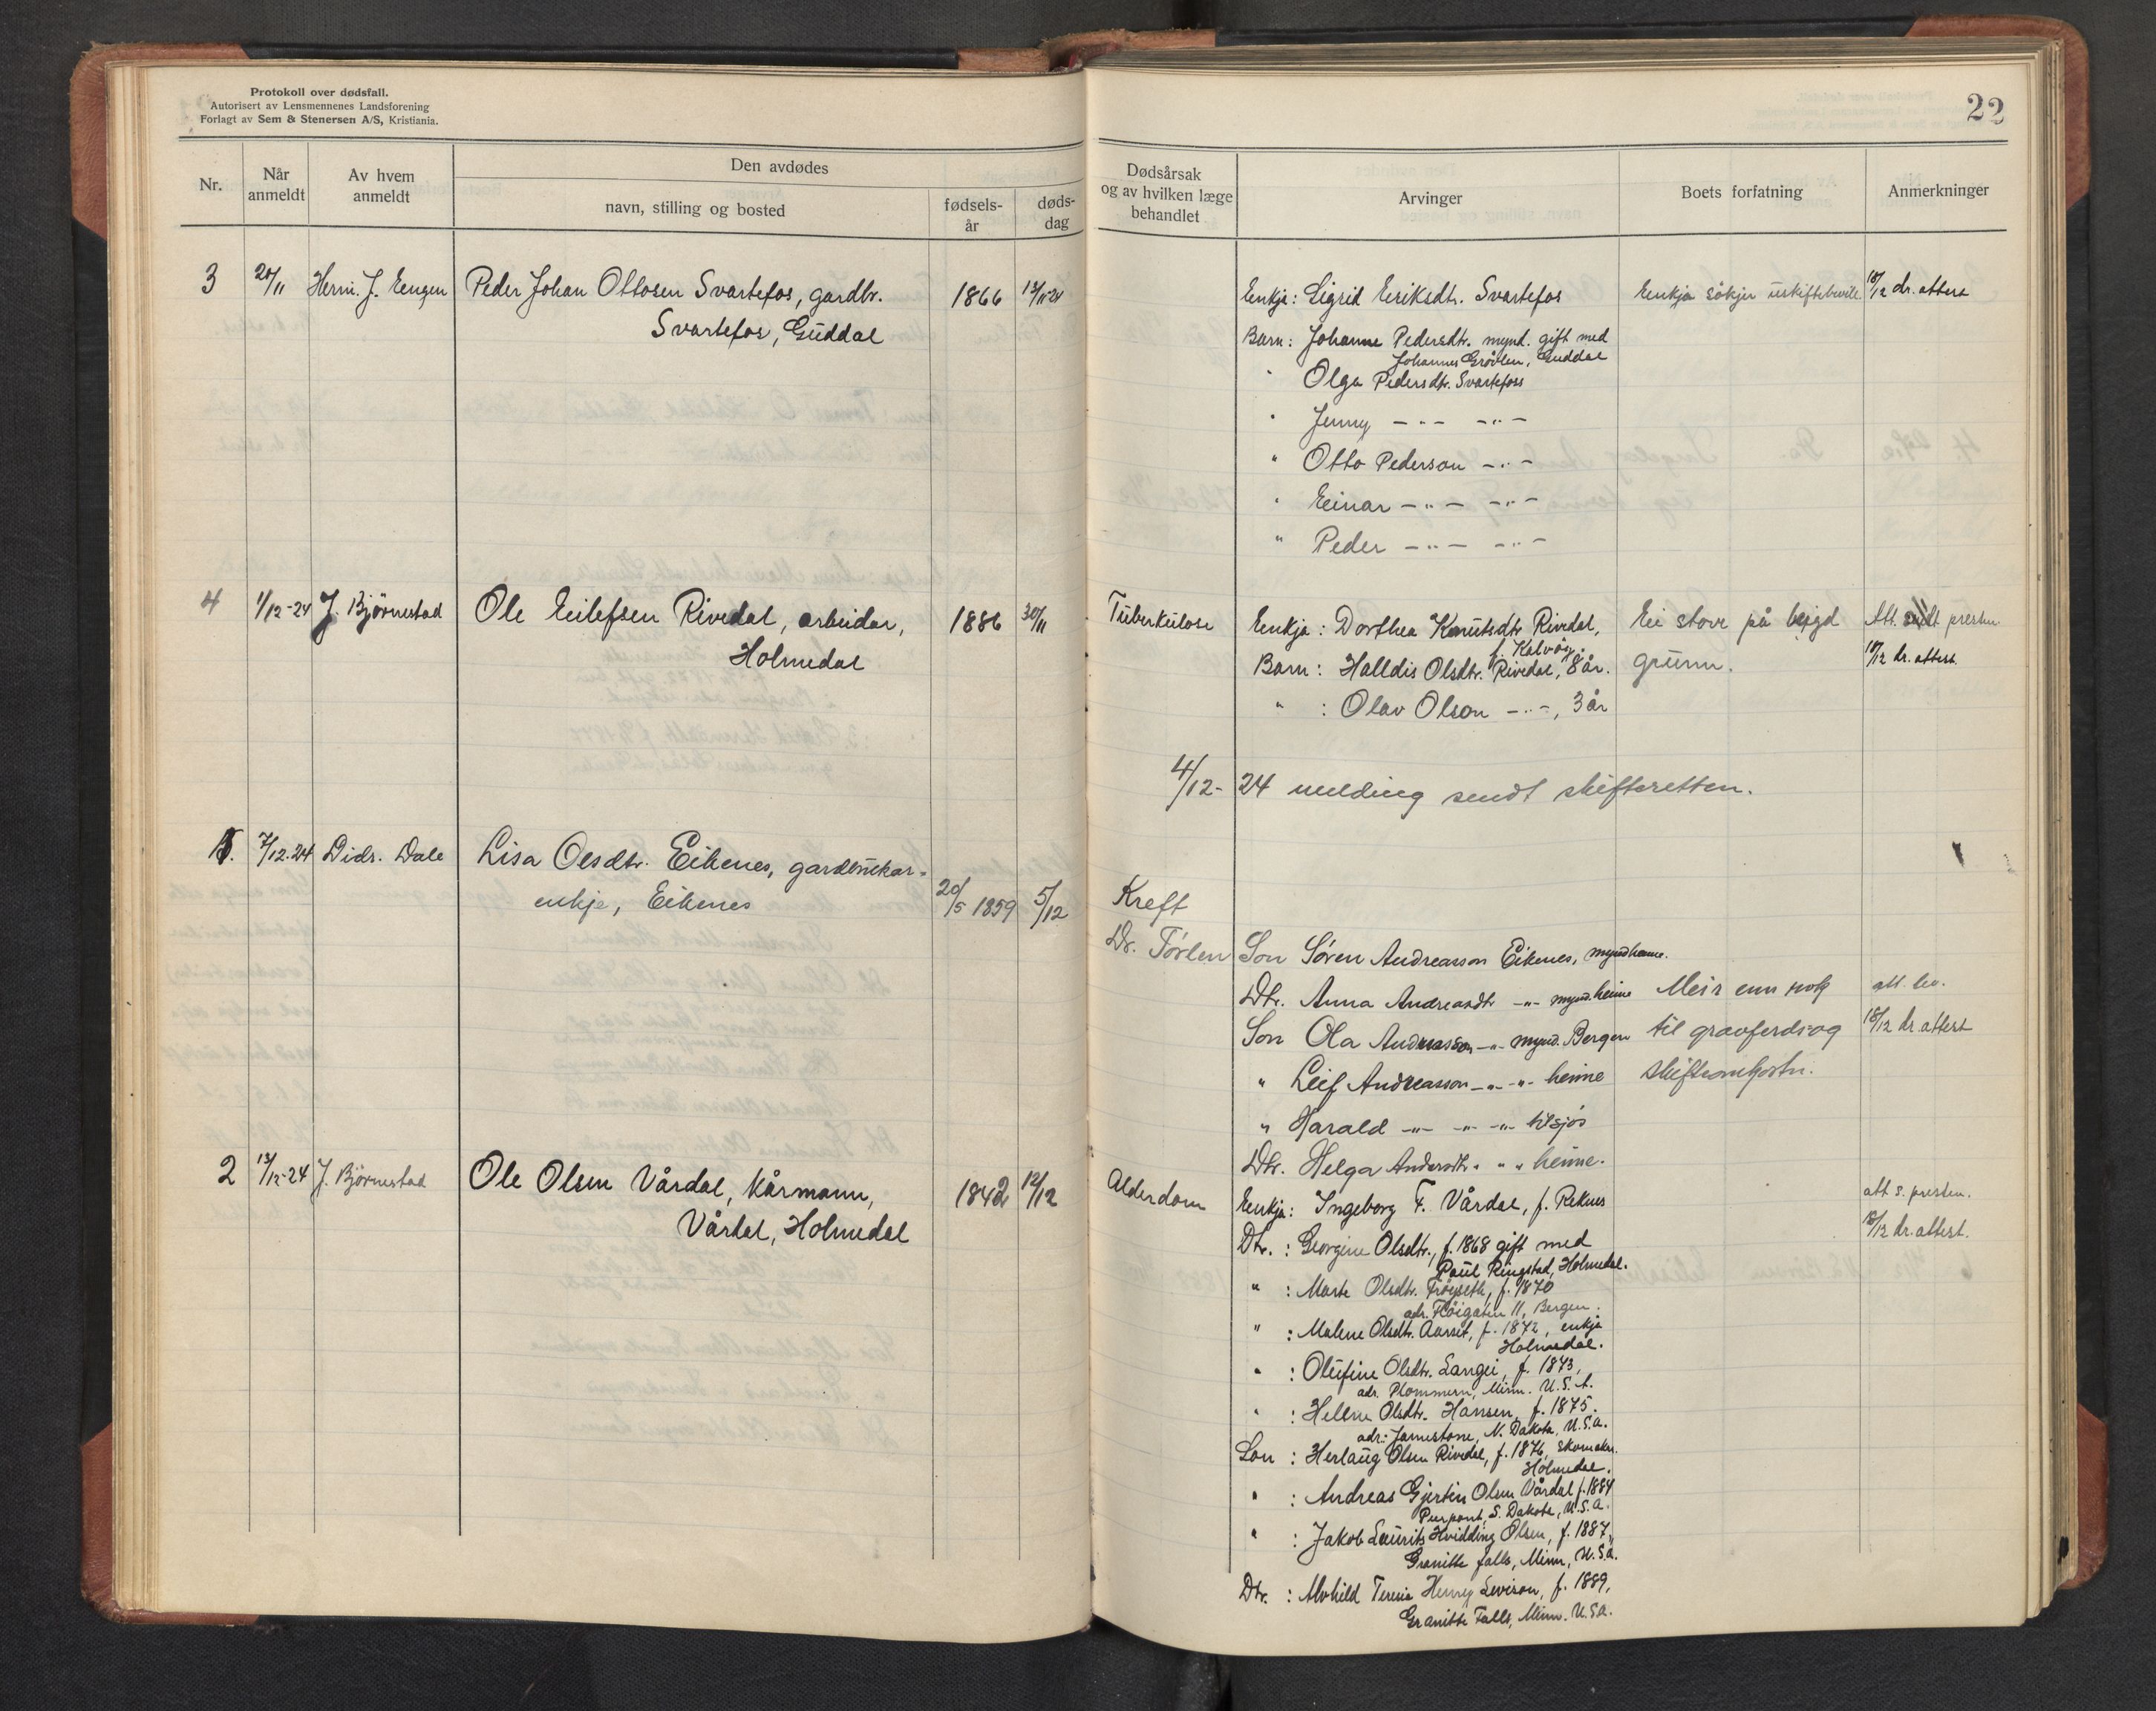 Protokoll over dødsfall.
Autorisert av Lensmennenes Landsforening
Forlagt av Sem & Stenersen A/S, Kristiania.
22
Nr.
Når anmeldt
Av hvem anmeldt
Den avdødes
navn, stilling og bosted
fødsels-år
døds-dag
Dødsårsak og av hvilken læge behandlet
Arvinger
Boets forfatning
Anmerkninger
3 20/11 Herm. J. Eengen Peder Johan Ottosen Svartefos, gardbr. 1866 13/11-24
Svartefos, Guddal
Eenkja: Sigrid Eeriksdtr. Svartefos
Eenkja søkjer uskiftebevill. 18/12 dr. attest
Barn: Johanne Pedersdtr. mynd. gift med
Johannes Grøvlen, Guddal
" Olga Pedersdtr. Svartefoss
" Jenny —"— —"—
" Otto Pederson —"—
" Eeinar —"— —"—
" Peder —"— —"—
4 1/12-24 J. Bjørnestad Ole Eeilefsen Rivedal, arbeidar, 1886 30/11
Holmedal
Tuberkulose
Eenkja: Dorthea Knutsdtr Rivedal,
f. Kalvåg.
Barn: Halldis Olsdtr. Rivedal, 8 år.
" : Olav Olson —"—, 3 år
Eei stove på bygd
grunn.
Att. sendt presten
18/12 dr. attest.
4/12-24 melding sendt skifteretten.
7/12.24 Didr. Dale Lisa Olsdtr. Eikenes, gardbrukar-
enkje, Eikenes 20/5 1859 5/12
Kreft
Dr. Tørlen
Son Søren Andreasson Eikenes, mynd heime.
Dtr. Anna Andreasdtr —"— mynd. heime
Son Ola Andreasson —"— mynd. Bergen
" Leif Andreasson —"— —"— heime
" Harald —"— —"— —"— tilsjøs
Dtr. Helga Andersdtr. " " " heime.
Meir enn nok
til gravferds- og
skifteomkostn.
att. lev.
18/12 dr. attest
2 13/12-24 J. Bjørnestad Ole Olsen Vårdal, kårmann, 1842 12/12
Vårdal, Holmedal
Alderdom
Eenkja: Ingeborg T. Vårdal, f. Reknes
att s. presten.
18/12 dr. attest.
Dtr. : Georgine Olsdtr., f. 1868 gift med
Paul Ringstad, Holmedal.
" : Marte Olsdtr. Frøyseth, f. 1870
adr. Fløigaten 11, Bergen.
" : Malene Olsdtr. Aarset, f. 1872, enkja
Holmedal.
" : Olufine Olsdtr. Langei, f. 1873,
adr. Plommern, Minn. U.S.A.
" : Hellne Olsdtr. Hansen, f. 1875.
adr: Jamestone, N. Dakota, U.S.a.
Son : Herlaug Olsen Rivedal, f. 1876, skomaker.
Holmedal.
" : Andreas Gjertin Olsen Vårdal f. 1884
Peerpont, S. Dakota, U.S.a.
" : Jakob Laurits Hvidding Olsen, f. 1887,
Granitte falls, Minn, U.S.a.
Dtr. : Alvhild Teresia Henry Levison, f. 1889,
Granitte Falls, Minn. U.S.a.